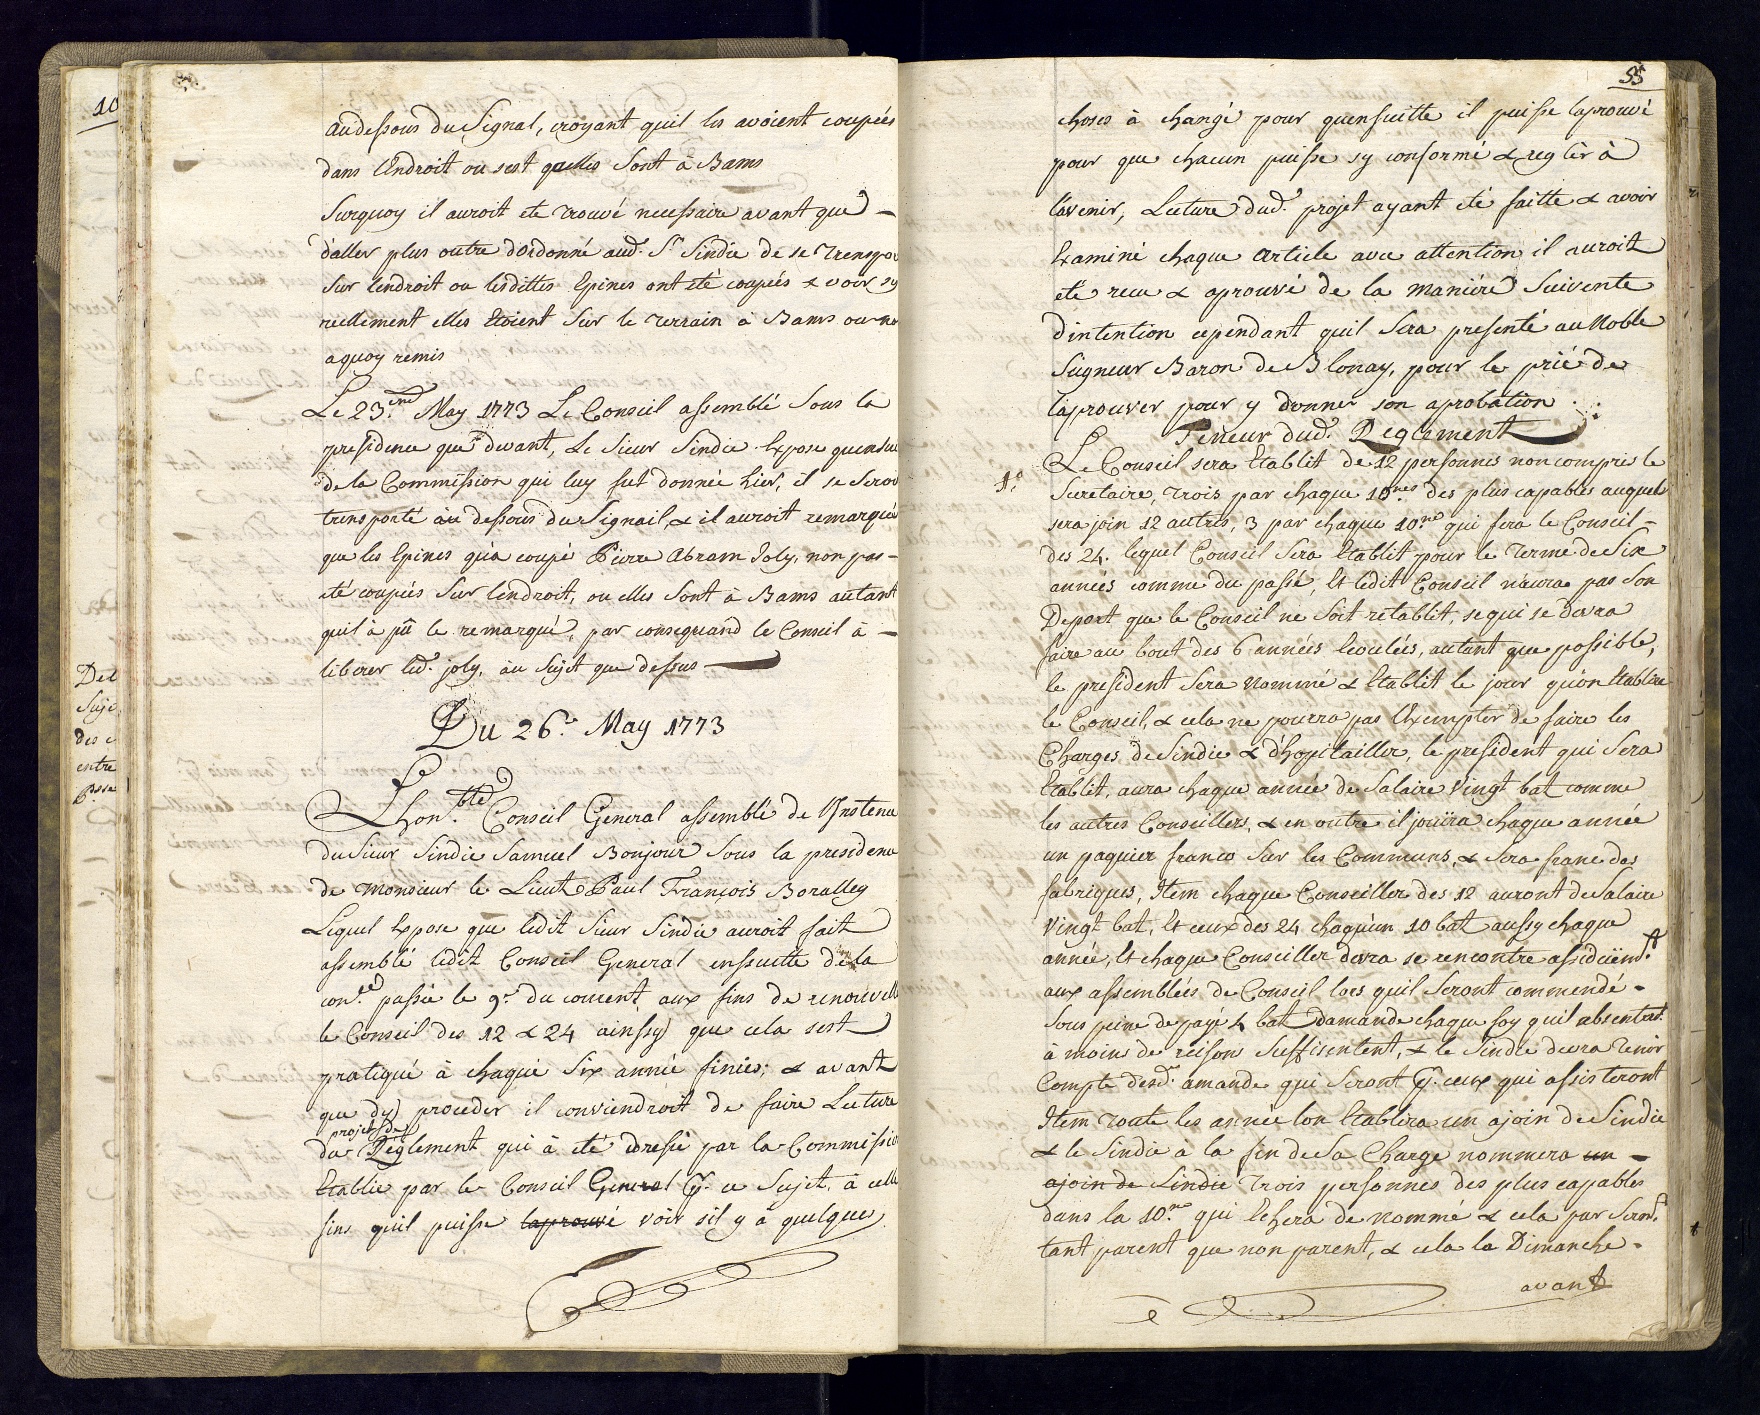 10
Del
Suje
des
entre
audessous du Signal, croyant quil les avoient coupées
dans lEndroit ou sest quelles Sont à Bams
Surquoy il auroit ete trouvé necessaire avant que
d'aller plus outre d'Ordonné aud. Sr. Sindic de se trenspor
Sur lendroit ou lesdittes Epines ont été coupées & voir sy
reellement elles Etoient Sur le terrain à Bams ou no
aquoy remis
Le 23.me May 1773 Le Conseil assemblé Sous la
presidence que devant, Le Sieur Sindic Expose quensui
de la Commission qui luy fut donnée hier, il se Seroi
trensporté au dessous du Signail, & il auroit remarqué
que les Epines qu'a coupé Pierre Abram Joly, non pas
été coupées Sur lendroit, ou elles Sont à Bams autant
quil à pû le remarqué, par consequand le Conseil à
liberer led. joly, au Sujet que dessus
Du 26.e May 1773
Lhon.ble Conseil General assemblé de l'Instence
du Sieur Sindic Samuel Bonjour Sous la presidence
de Monsieur le Lieut. Paul François Boralley
Lequel Expose que ledit Sieur Sindic auroit fait
assemblé ledit Conseil General ensuitte de la
con.ce passée le 9.e du courent, aux fins de renouvelle
le Conseil des 12 & 24 ainssy que cela sest
pratiqué à chaque Six année finies; & avant
que d'y proceder il conviendroit de faire Lecture
projet de
du Reglement qui à été dressé par la Commissio
Etablie par le Conseil General p. ce Sujet, à celle
fins quil puisse laprouvé voir sil y à quelques
55
choses à changé pour quensuitte il puisse laprouvé
pour que chacun puisse sy conformé & regler à
lavenir, Lecture dud. projet ayant eté faitte & avoir
Examiné chaque article avec attention il auroit
eté recu & aprouvé de la maniére Suivente
dintention cependant quil Sera presenté au Noble
Seigneur Baron de Blonay, pour le prié de
laprouver pour y donner son aprobation
Teneur dud. Reglement
1.o
Le Conseil sera Etablit de 12 personnes non compris le
Secretaire, trois par chaque 10.nes des plus capables auquels
sera join 12 autres, 3 par chaque 10.ne qui fera le Conseil
des 24. lequel Conseil Sera Etablit pour le terme de Six
années comme du passé, Et ledit Conseil n'aura pas Son
Deport que le Conseil ne Soit rétablit, se qui se devra
faire au bout des 6 années Ecoulées, autant que possible,
le president Sera Nommé & Etablit le jour qu'on Etablira
le Conseil, & cela ne pourra pas l'Exempter de faire les
Charges de Sindic & d'hopitaillier, le president qui Sera
Etablit, aura chaque année de Salaire Vingt bat comme
les autres Conseillers, & en outre il jouira chaque année
un paquier franco Sur les Communs, & Sera franc des
fabriques, Item chaque Conseiller des 12 auront de Salaire
Vingt bat, Et ceux des 24 chaquun 10 bat aussy chaque
année, Et chaque Conseiller devra se rencontre assiduëmt.
aux assemblées de Conseil lors quil Seront commendé
Sous peine de payé 4 bat damande chaque foy quil absentent
à moins de reison Suffisentent, & le Sindic devra tenir
Compte desd. amande qui Seront p. ceux qui assisteront
Item toute les année lon Etablira un ajoin de Sindic
& le Sindic à la fin de Sa Charge nommera un
ajoin de Sindic trois personnes des plus capables
dans la 10.ne qui Echera de nommé & cela par
tant parent que non parent, & cela la Dimanche
avant